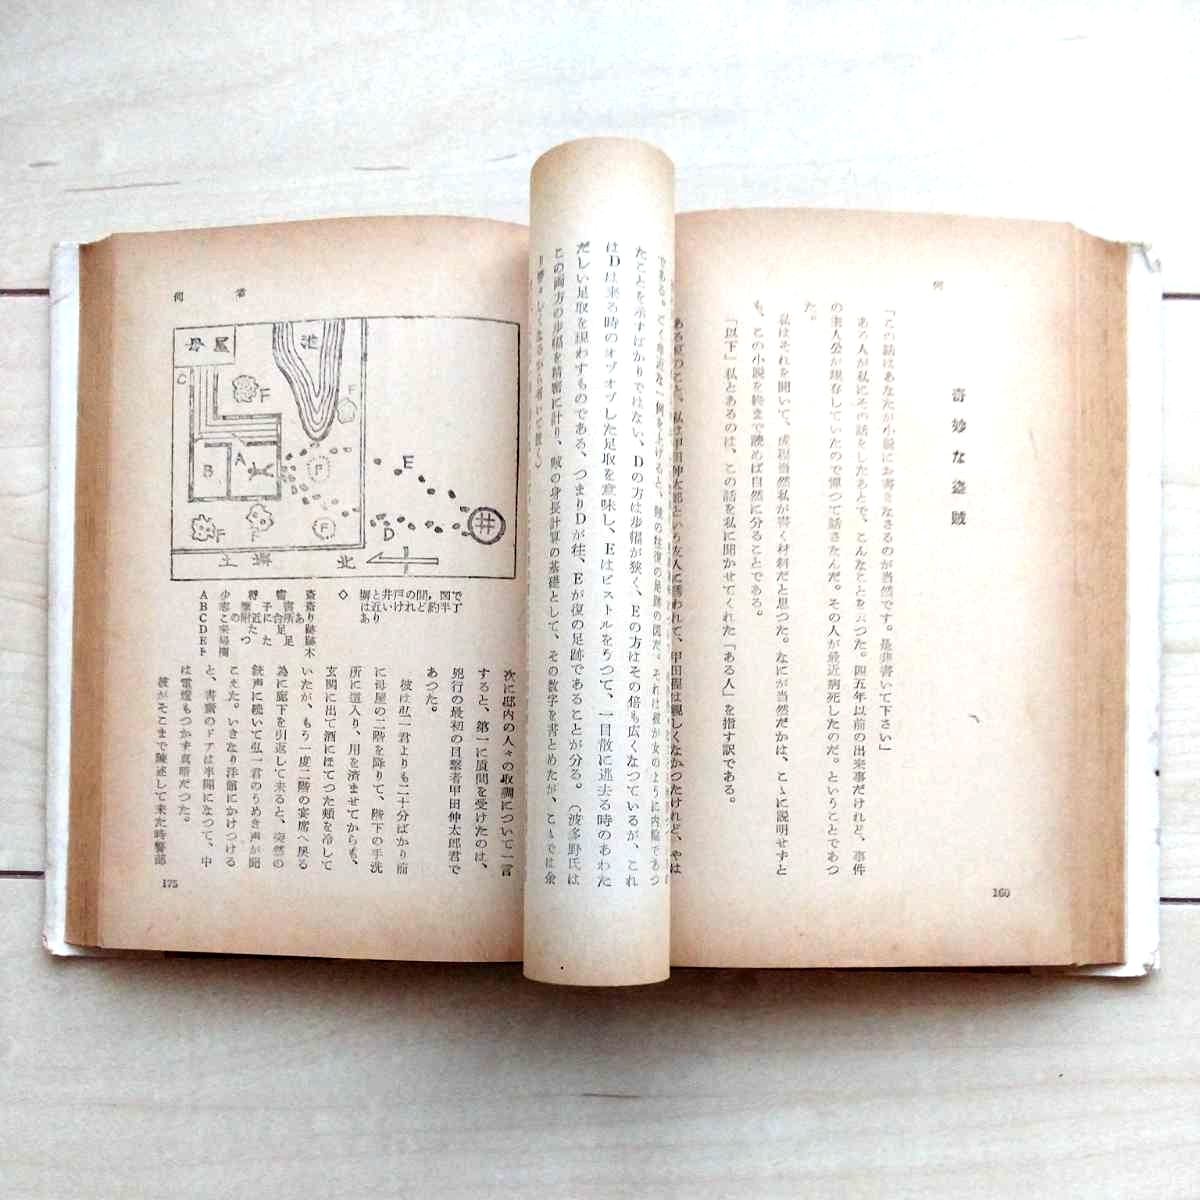 何
奇妙な盗賊
「この話はあなたが小説にお書きなさるのが当然です。是非書いて下さい」
ある人が私にその話をしたあとで、こんなことを云つた。四五年以前の出来事だけれど、事件
の主人公が現存していたので憚つて話さなんだ。その人が最近病死したのだ。ということであつ
た。
私はそれを聞いて、成程当然私が書く材料だと思つた。なにが当然だかは、こゝに説明せずと
も、この小説を終まで読めば自然に分ることである。
「以下」私とあるのは、この話を私に聞かせてくれた「ある人」を指す訳である。
160
たことを示すばかりではない、Dの方は歩幅が狭く、Eの方はその倍も広くなつているが、これ
はD は来る時のオヅオヅした足取を意味し、Eはピストルをうつて、一目散に逃去る時のあわた
だしい足取を現わすものである、つまりDが往、Eが復の足跡であることが分る。(波多野氏は
この両方の歩幅を精密に計り、賊の身長計算の基礎として、その数字を書とめたが、こゝでは余
何者
母屋
池
C
F
F
A
B
F
E
D
井
F
F
F
土塀
北
A
B
C
D
E
F
◇
次に邸内の人々の取調について一言
すると、第一に質問を受けたのは、
兇行の最初の目撃者甲田伸太郎君で
あつた。
彼は弘一君よりも二十分ばかり前
に母屋の二階を降りて、階下の手洗
所に這入り、用を済ませてからも、
玄関に出て酒にほてつた頬を冷して
いたが、もう一度二階の宴席へ戻る
為に廊下を引返して来ると、突然の
銃声に続いて弘一君のうめき声が聞
こえた。いきなり洋館にかけつける
と、書斎のドアは半開になつて、中
は電燈もつかず真暗だつた。
彼がそこまで陳述して来た時警部
175